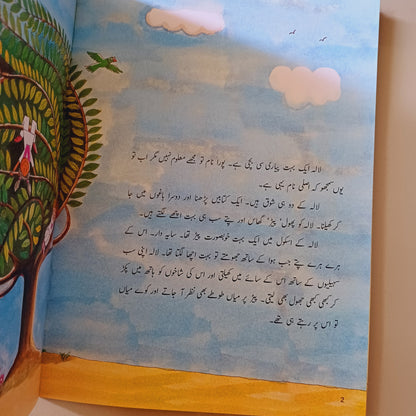 لالہ ایک بہت پیاری سی بچی ہے۔ پورا نام تو مجھے معلوم نہیں مگر اب تو
یوں سمجھو کہ اصلی نام یہی ہے۔
لالہ کے دو ہی شوق ہیں۔ ایک کتابیں پڑھنا اور دوسرا باغوں میں جا
کر کھیلنا۔ لالہ کو پھول، پیڑ، گھاس اور پتے سب ہی بہت اچھے لگتے ہیں۔
لالہ کے اسکول میں ایک بہت خوبصورت پیڑ تھا۔ سایہ دار۔ اس کے
ہرے ہرے پتے جب ہوا کے ساتھ جھومتے تو بہت اچھا لگتا تھا۔ لالہ اپنی سب
سہیلیوں کے ساتھ اس کے سائے میں کھیلتی اور اس کی شاخوں کو ہاتھ میں پکڑ
کر کبھی کبھی جھول بھی لیتی۔ پیڑ پر میاں طوطے بھی نظر آ جاتے اور کوے میاں
تو اس پر رہتے ہی تھے۔
2